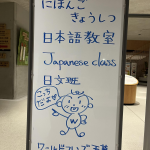 にほんご
きょうしつ
日本語教室
Japanese class
日文班
こっち
だよ!!
W